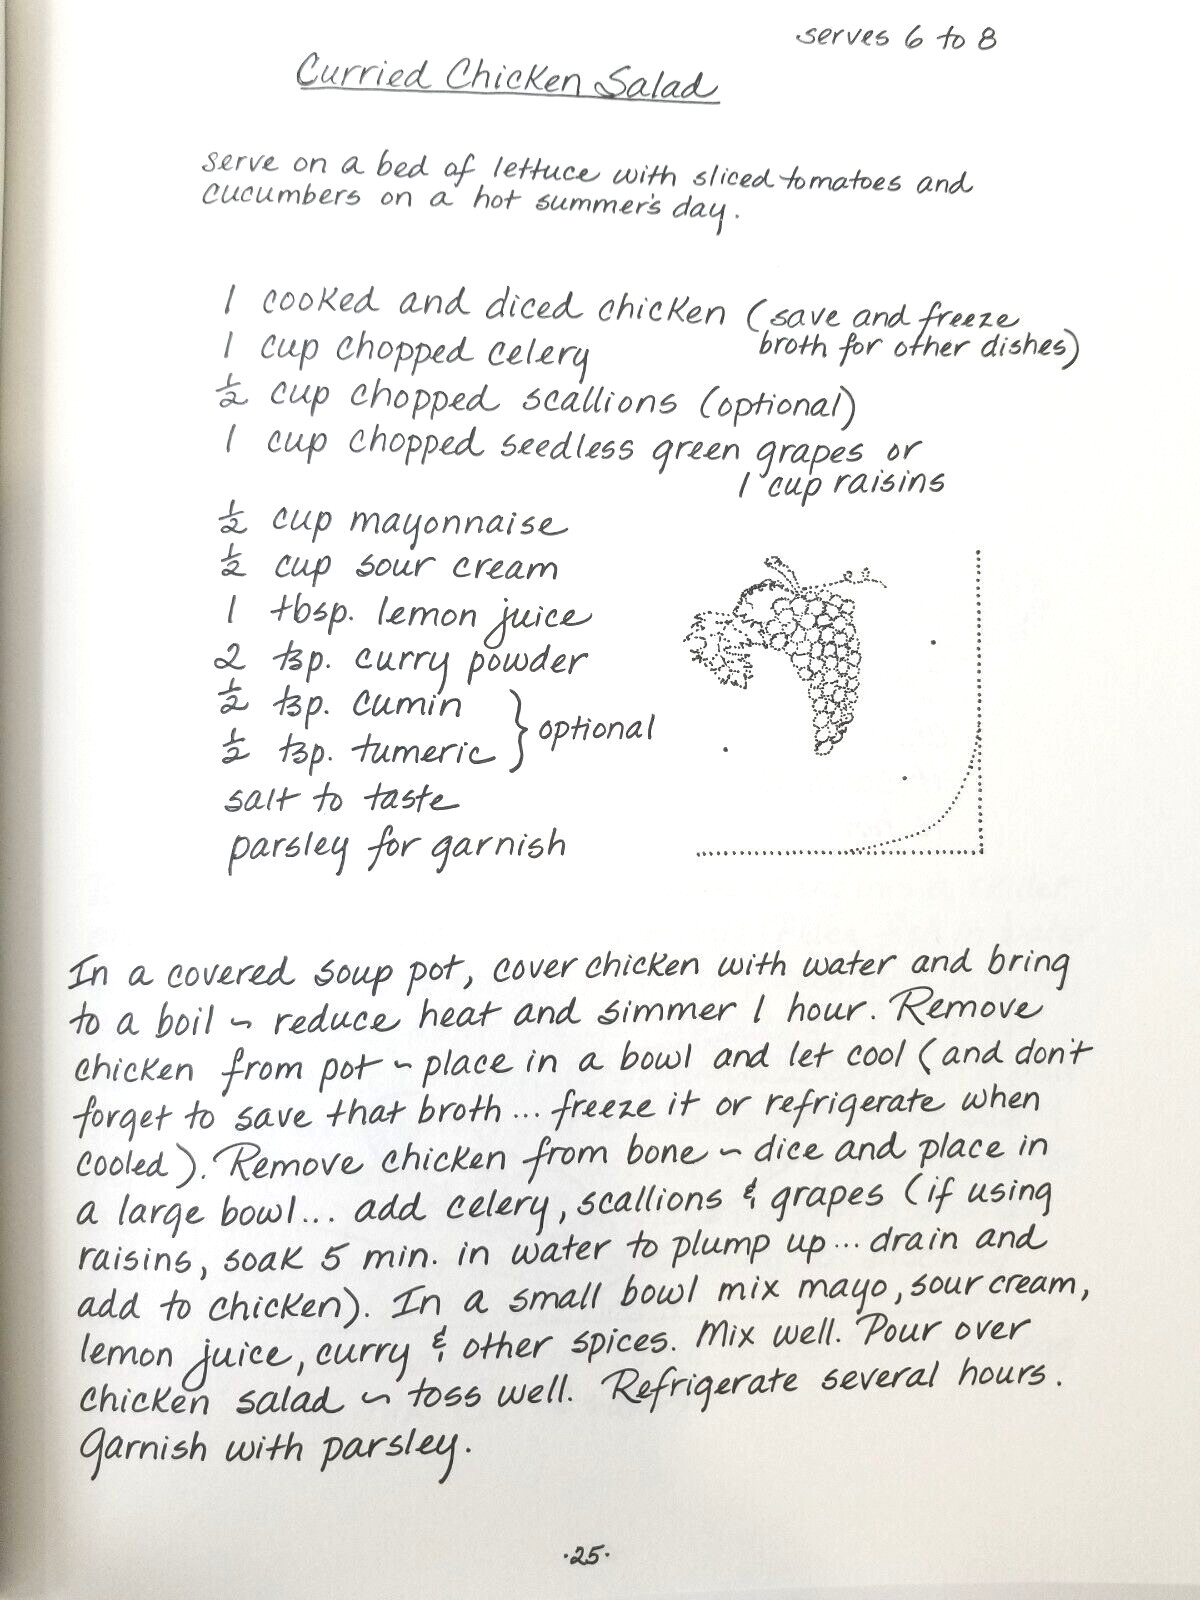 serves 6 to 8
Curried Chicken Salad
serve on a bed of lettuce with sliced tomatoes and
cucumbers on a hot summer's day.
1 cooked and diced chicken (save and freeze
broth for other dishes)
1 cup chopped celery
½ cup chopped scallions (optional)
1 cup chopped seedless green grapes or
1 cup raisins
½ cup mayonnaise
½ cup sour cream
1 tbsp. lemon juice
2 tsp. curry powder
½ tsp. cumin
½ tsp. tumeric } optional
salt to taste
parsley for garnish
In a covered soup pot, cover chicken with water and bring
to a boil ~ reduce heat and simmer 1 hour. Remove
chicken from pot ~ place in a bowl and let cool (and don't
forget to save that broth... freeze it or refrigerate when
cooled). Remove chicken from bone ~ dice and place in
a large bowl... add celery, scallions & grapes (if using
raisins, soak 5 min. in water to plump up... drain and
add to chicken). In a small bowl mix mayo, sour cream,
lemon juice, curry & other spices. Mix well. Pour over
chicken salad ~ toss well. Refrigerate several hours.
Garnish with parsley.
·25·